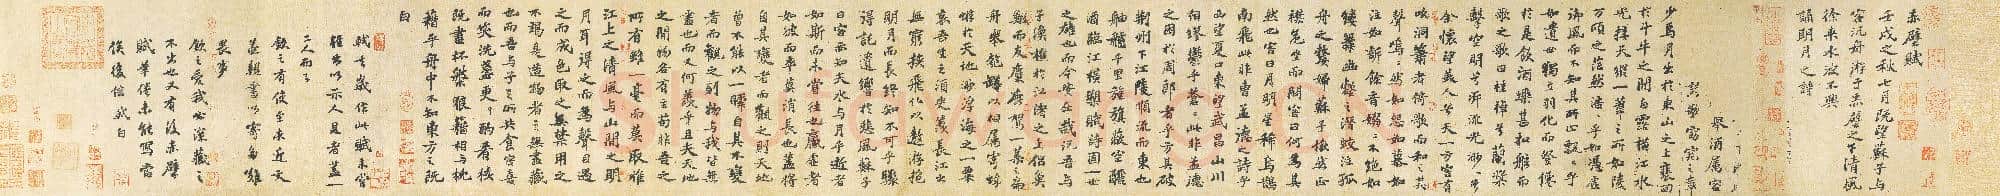 赤壁賦
壬戌之秋七月既望蘇子與
客泛舟游于赤壁之下清風
徐來水波不興
誦明月之詩
舉酒屬客
歌窈窕之章
少焉月出於東山之上裵回
於斗牛之間白露橫江水
光接天縱一葦之所如陵
萬頃之茫然浩浩乎如馮虛
御風而不知其所止飄飄乎
如遺世獨立羽化而登僊
於是飲酒樂甚扣舷而
歌之歌曰桂棹兮蘭槳
擊空明兮泝流光渺渺兮
余懷望美人兮天一方客有
吹洞簫者倚歌而和之其
聲嗚嗚然如怨如慕如
泣如訴餘音嫋嫋不絕如
縷舞幽壑之潛蛟泣孤
舟之嫠婦蘇子愀然正
襟危坐而問客曰何為其
然也客曰月明星稀烏鵲
南飛此非曹孟德之詩乎
西望夏口東望武昌山川
相繆鬱乎蒼蒼此非孟德
之困於周郎者乎方其破
荊州下江陵順流而東也
舳艫千里旌旗蔽空釃
酒臨江橫槊賦詩固一世
之雄也而今安在哉況吾與
子漁樵於江渚之上侶魚
鰕而友麋鹿駕一葉之扁
舟舉匏罇以相屬寄蜉
蝣於天地渺浮海之一粟
哀吾生之須臾羨長江之
無窮挾飛仙以遨遊抱
明月而長終知不可乎驟
得託遺響於悲風蘇子
曰客亦知夫水與月乎逝者
如斯而未嘗往也贏虛者
如彼而卒莫消長也蓋將
自其變者而觀之則天地
曾不能以一瞬自其不變
者而觀之則物與我皆無
盡也而又何羨乎且夫天地
之間物各有主苟非吾之
所有雖一毫而莫取惟
江上之清風與山間之明
月耳得之而為聲目遇
之而成色取之無禁用之
不竭是造物者之無盡藏
也而吾與子之所共食客喜
而笑洗盞更酌肴核
既盡杯盤狼籍相與枕
藉乎舟中不知東方之既
白
軾去歲作此賦未嘗
輕出以示人見者蓋一
二人而已
欽之有使至求近文
遂親書以寄多難
畏事
欽之愛我必深藏之
不出也又有後赤壁
賦筆倦未能寫當
俟後信軾白